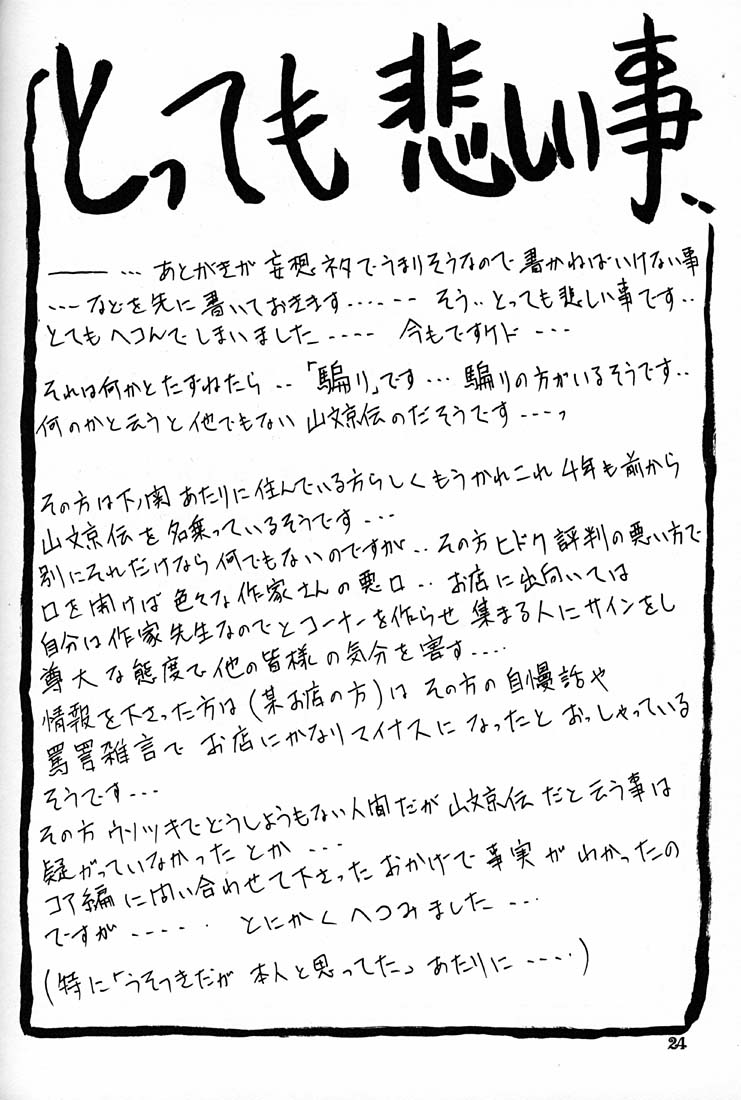 とっても悲しい事‥
―― … あとがきが 妄想ネタでうまりそうなので 書かねばいけない事
…などを先に書いておきます…… そう‥とっても悲しい事です‥
とてもヘコんでしまいました…… 今もですケド …
それは何かとたずねたら ‥「騙り」です… 騙りの方がいるそうです‥
何のかと云うと他でもない 山文京伝のだそうです…っ
その方は下ノ関あたりに住んでいる方らしくもうかれこれ 4年も前から
山文京伝を名乗っているそうです…
別にそれだけなら何でもないのですが‥その方ヒドク評判の悪い方で
口を開けば色々な作家さんの悪口‥ お店に出向いては
自分は作家先生なのでとコーナーを作らせ 集まる人にサインをし
尊大な態度で他の皆様の気分を害す……
情報を下さった方は(某お店の方)は その方の自慢話や
罵詈雑言で お店にかなりマイナスに なったと おっしゃっている
そうです…
その方ウソツキでどうしようもない人間だが 山文京伝だと云う事は
疑がっていなかったとか …
コア編に問い合わせて下さった おかげで事実が わかったの
ですが…… とにかくへコみました …
(特に「うそつきだが 本人と思ってた」あたりに ……)
24